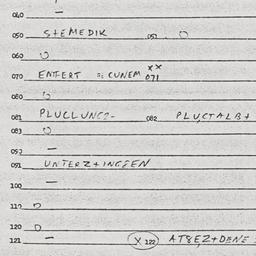 040 —
050 STEMEDIK 051 O
060 O
070 ENTERT = CUNEM 071 XX
080 O
081 PLUCLUNGS- 082 PLUCTALB+
083 O
092 —
091 UNTERZ+INGEEN
100 —
110 O
120 O
121 — X 122 AT8EZ+DENE